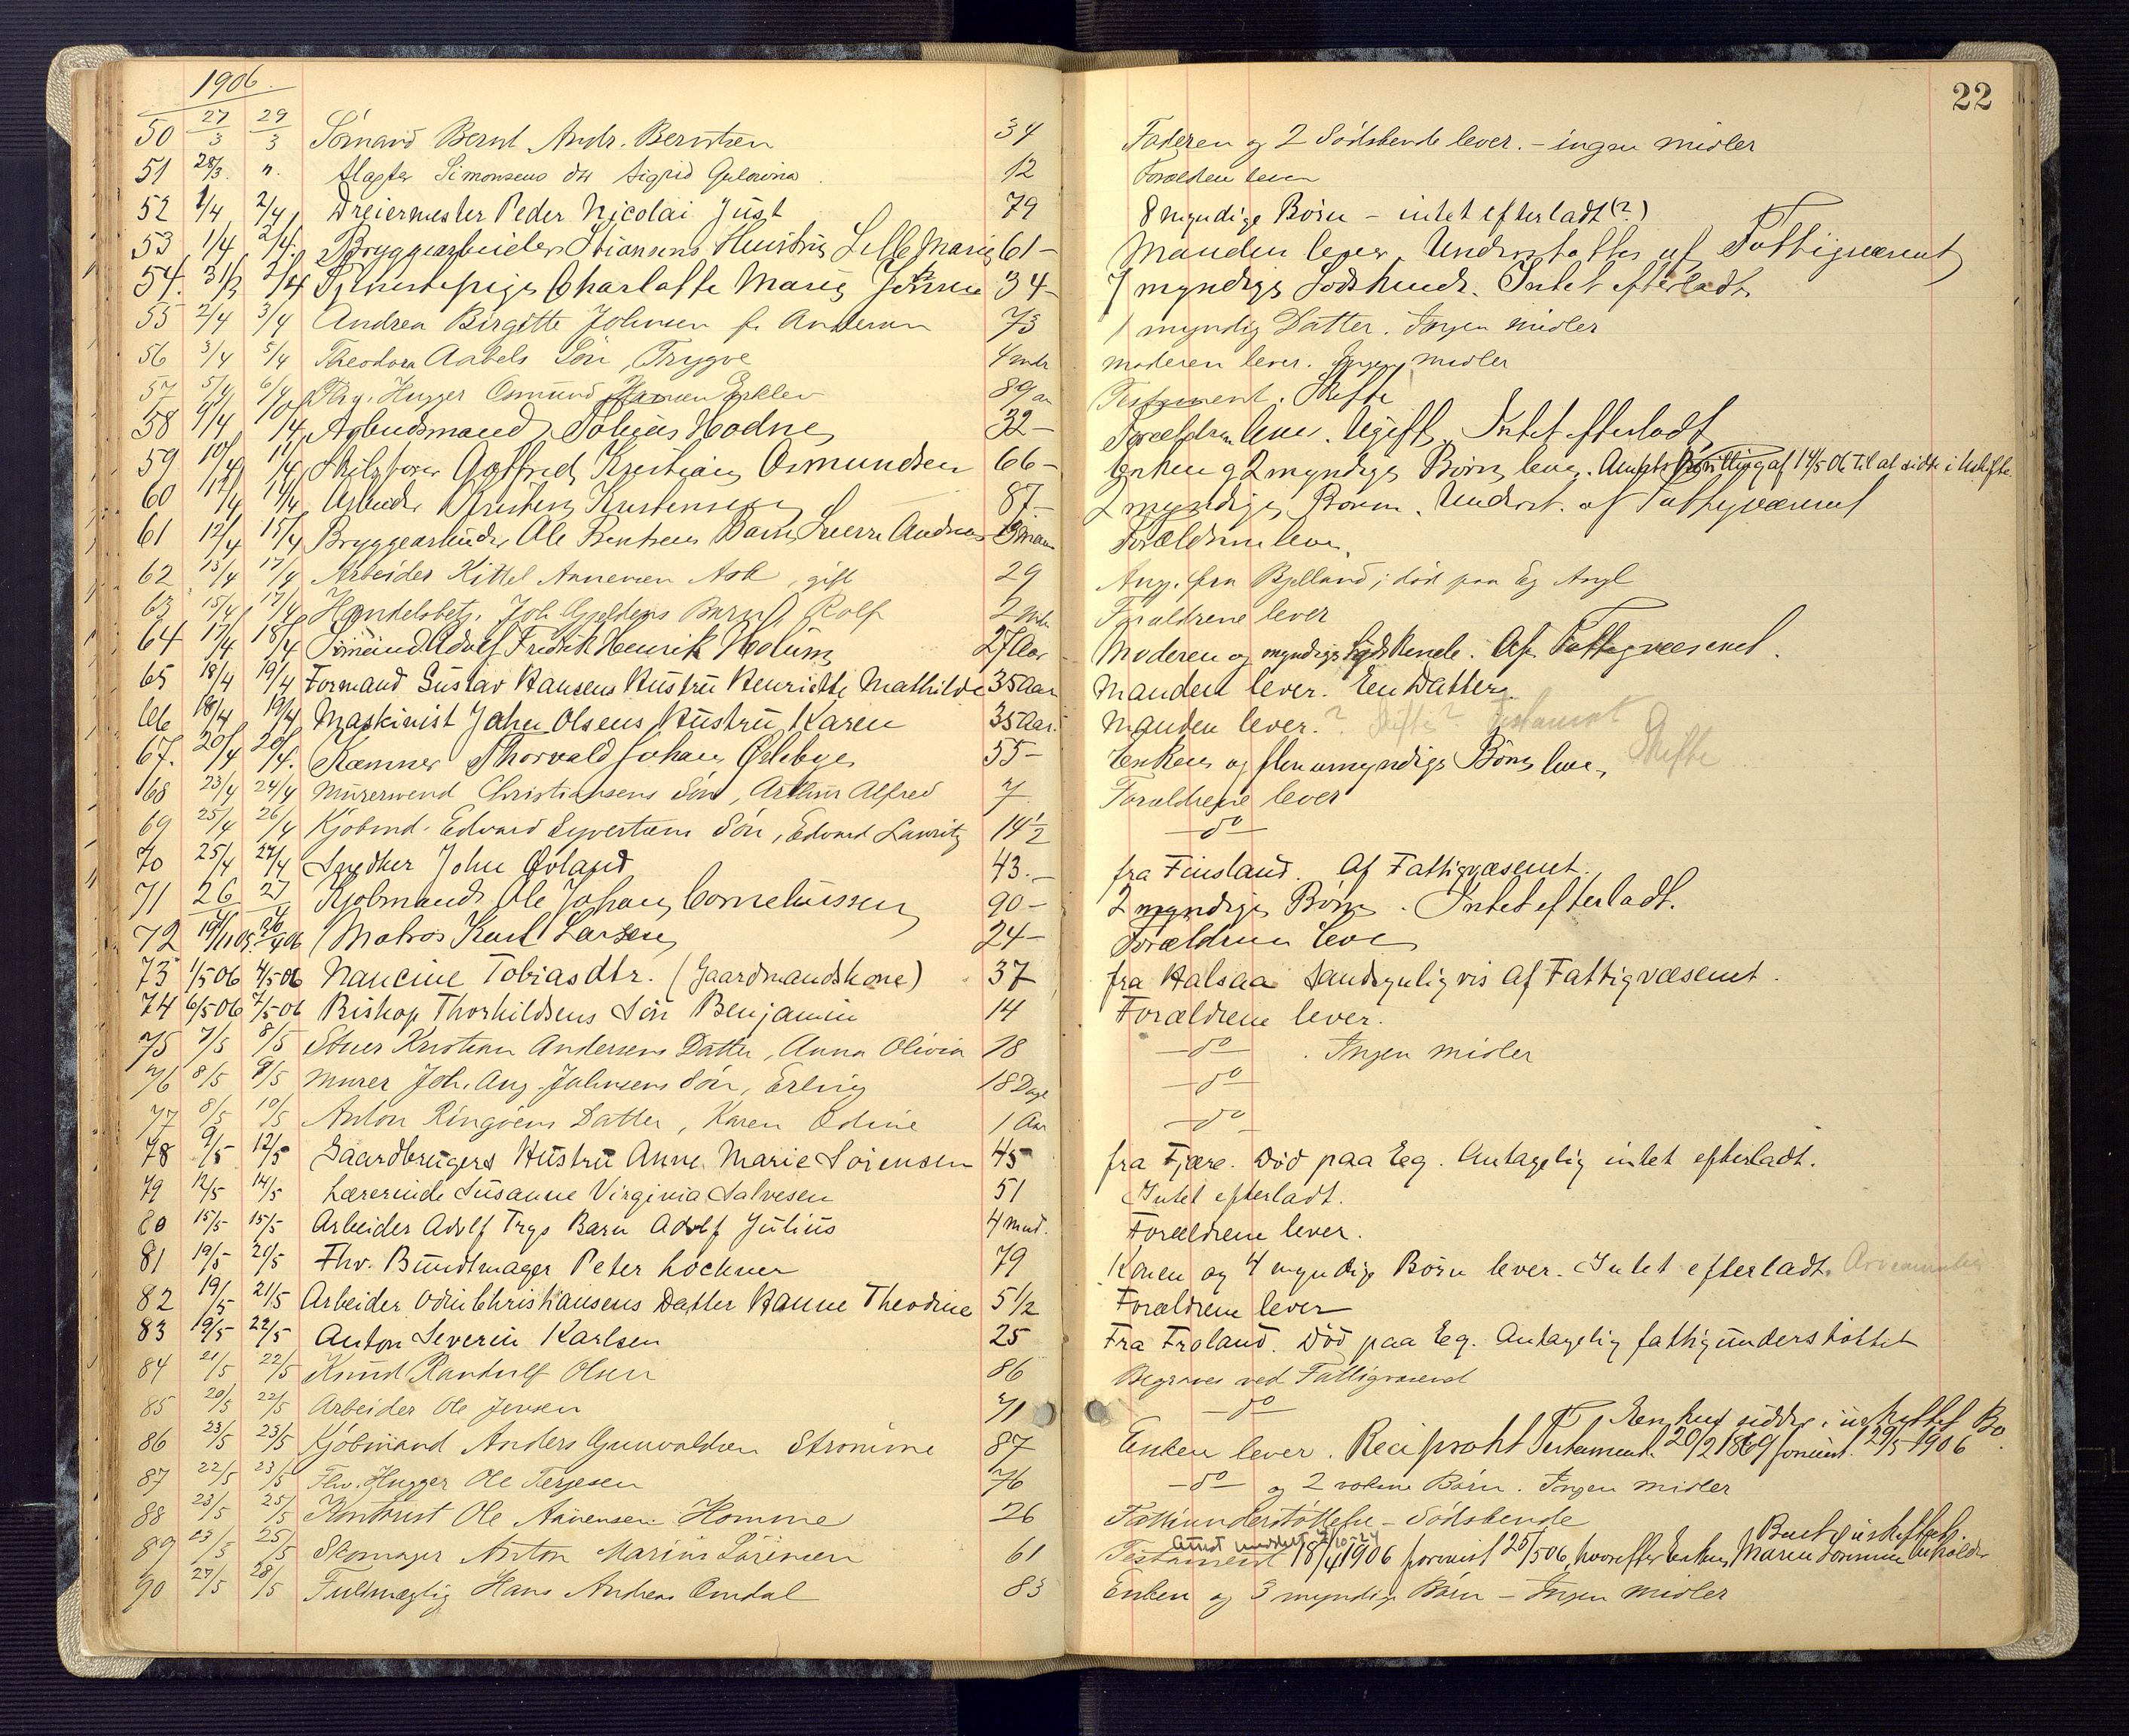 1906.
22
50 27/3 29/3 Sömand Bernt Andr. Berntsen 34 Faderen og 2 Södskende lever. - ingen midler
51 28/3. ". Slagter Simonsens dtr Sigrid Gulovina. 12 Forældrene lever
52 1/4 2/4 Dreiermester Peder Nicolai Just 79 8 myndige Börn - intet efterladt (?)
53 1/4 2/4. Bryggearbeider Stiansens Hustru Marie 61- Manden lever. Understøttes af Fattigvæsenet
54. 31/3 2/4 Tjenestepige Charlotte Marie 34- 7 myndige Södskende. Intet efterladt
55 2/4 3/4 Andrea Birgitte Johnsen f. Andersen 73 1 myndig Datter. Ingen midler
56 3/4 5/4 Theodora Aabels Sön, Trygve 4 mdr moderen lever. Ingen midler
57 5/4 6/4 Fhv. Hugger Osmund Eeklev 89 aar Testament. Skifte
58 9/4 10/4 Arbeidsmand Tobias Hodne 32- Forældrene lever. Ugift. Intet efterladt
59 10/4 11/4 Gotfred Kristian Osmundsen 66- Enken og 2 myndige Börn lever. Amtets Bevilling af 14/5 06 til at sidde i Uskifte.
60 12/4 14/4 Arbeider Kristen Kristensen 87- 2 myndige Börn. Underst. af Fattigvæsenet
61 12/4 15/4 Bryggearbeider Ole Bentsens Barn Sverre Andreas Forældrene lever.
62 13/4 17/4 Arbeider Kittel Annensen Ask, gift 29 Ang. fra Bjelland; död paa Eg Asyl
63 15/4 17/4 Handelsbetj. Joh Gyldens Barn, Rolf 2 Mdr Forældrene lever
64 17/4 18/4 Sömand Adolf Fredrik Henrik Holum 27 Aar Moderen og myndige Södskende. Af Fattigvæsenet.
65 18/4 19/4 Formand Gustav Hansens Hustru Henriette Mathilde 35 Aar Manden lever. En Datter.
66 18/4 19/4 Maskinist John Olsens Hustru Karen 35 Aar. Manden lever. ? Skifte? Testament
67. 20/4 20/4. Kæmner Thorvald Johan Øslebye 55- Enken og flere umyndige Börn lever. Skifte
68 23/4 24/4 Murersvend Christiansens Sön, Arthur Alfred 7 Forældrene lever
69 25/4 26/4 Kjöbmd. Edvard Syvertsens Sön, Edvard Lauritz 14 1/2 - do -
70 25/4 27/4 Snedker John Øvland 43.- fra Finsland. Af Fattigvæsenet.
71 26/4 27/4 Kjöbmand Ole Johan Corneliussen 90- 2 myndige Börn. Intet efterladt.
72 19/11 05. 26/4 06 Matros Karl Larsen 24- Forældrene lever
73 1/5 06 4/5 06 Nancine Tobiasdtr. (Gaardmandskone) 37 fra Halsaa Sandsynligvis af Fattigvæsenet.
74 6/5 06 7/5 06 Biskop Thorkildsens Sön Benjamin 14 Forældrene lever.
75 7/5 8/5 Stuer Kristian Andersens Datter, Anna Olivia 18 - do - . Ingen midler
76 8/5 9/5 Murer Joh. Aug. Johnsens Sön, Erling 18 Dage - do -
77 8/5 10/5 Anton Ringöens Datter, Karen Odine 1 Aar - do -
78 9/5 12/5 Gaardbrugers Hustru Anne Marie Sörensen 45 fra Fjære. Död paa Eeg. Antagelig intet efterladt.
79 12/5 14/5 Lærerinde Susanne Virginia Salvesen 51 Intet efterladt.
80 15/5 15/5 Arbeider Adolf Trys Barn Adolf Julius 4 mnd. Forældrene lever.
81 19/5 21/5 Fhv. Bundtmager Peter Lochner 79 Konen og 4 myndige Börn lever. Intet efterladt.
82 19/5 21/5 Arbeider Odin Christiansens Datter Hanne Theodine 5 1/2 Forældrene lever
83 19/5 22/5 Anton Severin Karlsen 25 Fra Froland. Död paa Eg. Antagelig fattigunderstöttet
84 21/5 22/5 Knud Randulf Olsen 86 Begraves ved Fattigvæsenet
85 20/5 22/5 Arbeider Ole Jensen 71 - do -
86 23/5 23/5 Kjöbmand Anders Gunvaldsen Strömme 87 Enken lever. Reciprokt Testament 20/2 1869 29/5 1906 Enken sidder i uskiftet Bo.
87 22/5 23/5 Fhv. Hugger Ole Terjesen 76 - do - og 2 voksne Börn. Ingen midler
88 23/5 25/5 Kontorist Ole Aanensen Homme 26 Fattigunderstöttelse - Södskende
89 23/5 25/5 Skomager Anton Marius Sörensen 61 Testament 18/4 1906 forevist 25/5 06, hvorefter Enken Maren Sörensen beholder Boet uskiftet.
90 27/5 28/5 Fuldmægtig Hans Andreas Omdal 83 Enken og 3 myndige Börn - Ingen midler